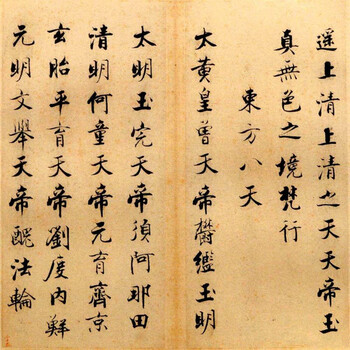 遥上清上清之天天帝玉
真無色之境梵行
東方八天
太黃皇曾天帝鬱繿玉明
太明玉完天帝須阿那田
清明何童天帝元育齊京
玄胎平育天帝劉度內鮮
元明文舉天帝醜法輪